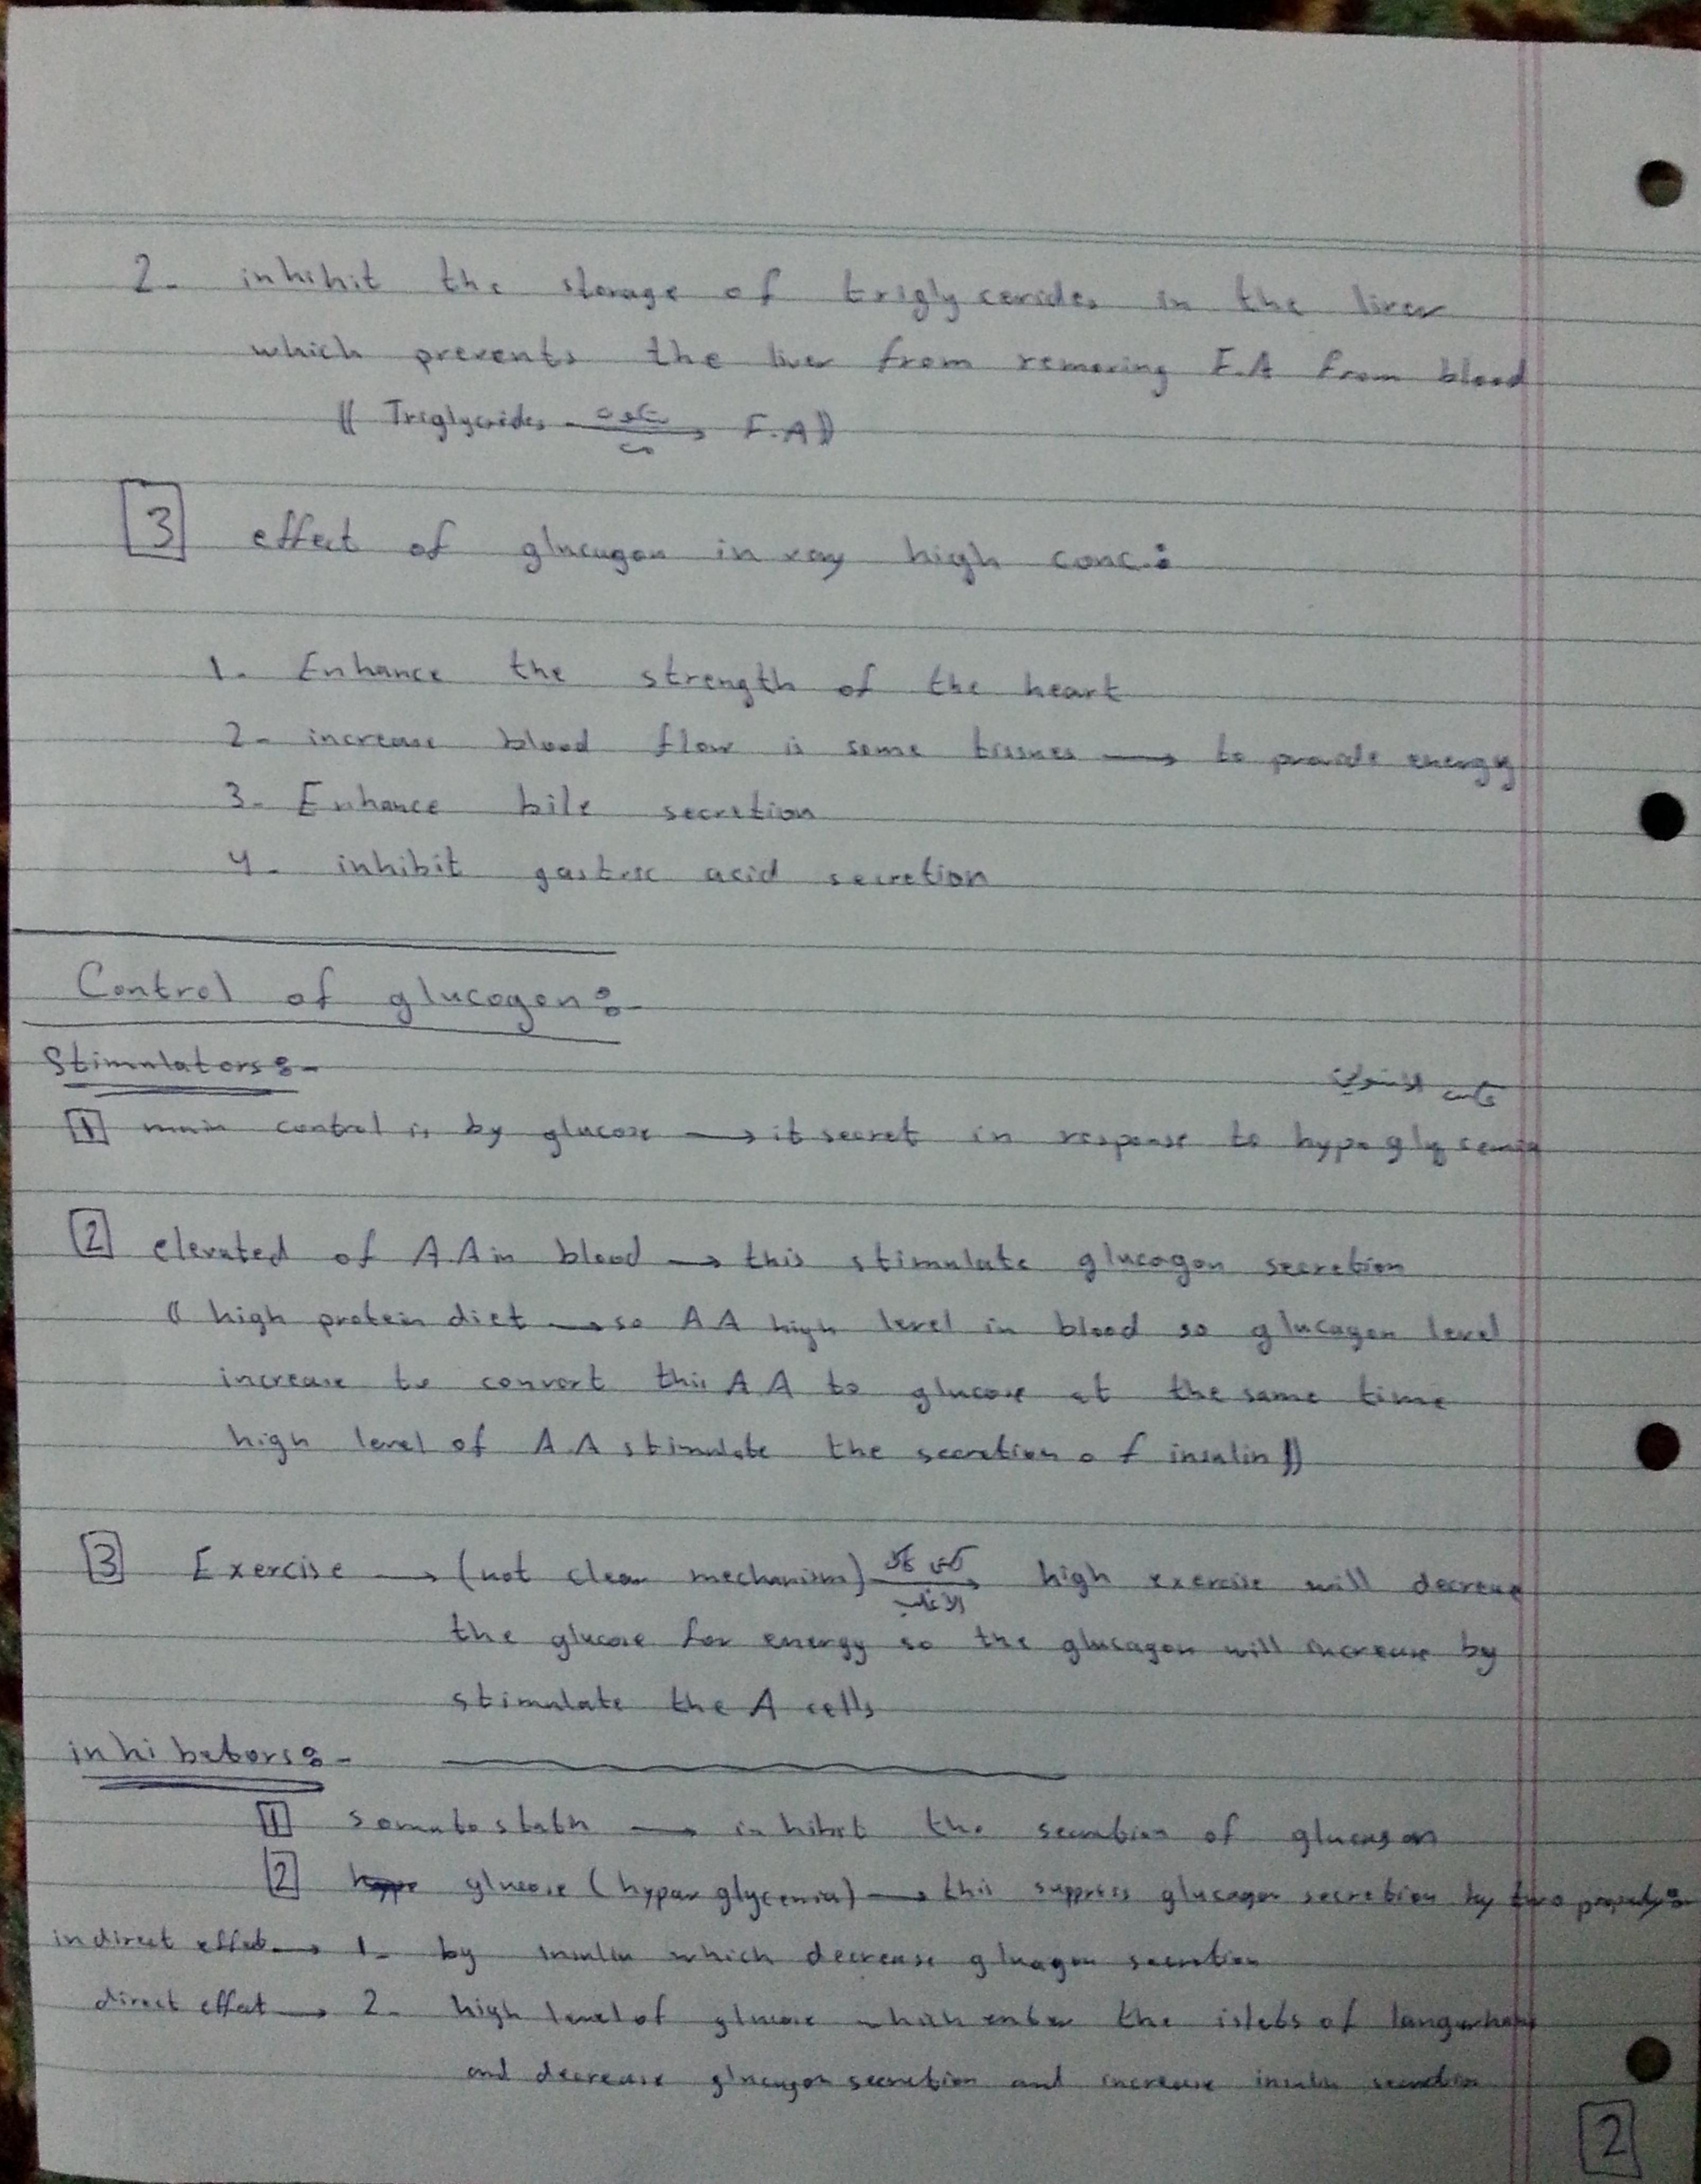 2- inhibit the storage of triglycerides in the liver
which prevents the liver from removing F.A from blood
(( Triglycerides → F.A ))
3 effect of glucagon in very high conc.:
1. Enhance the strength of the heart
2- increase blood flow is some tissues → to provide energy
3- Enhance bile secretion
4- inhibit gastric acid secretion
Control of glucogon:-
Stimulators:-
عكس الانسولين
1 main control is by glucose → it secret in response to hypoglycemia
2 elevated of A.A in blood → this stimulate glucogon secretion
(( high protein diet → so AA high level in blood so glucagon level
increase to convert this AA to glucose at the same time
high level of A.A stimulate the secretion of insulin ))
3 Exercise → (not clear mechanism) → high exercise will decrease
the glucose for energy so the glucagon will increase by
stimulate the A cells
inhibetors:-
1 somatostatin → inhibit the secretion of glucagon
2 glucose (hyperglycemia) → this suppress glucagon secretion by two
indirect effect → 1- by insulin which decrease glucagon secretion
direct effect → 2- high level of glucose which enter the islets of langerhans
and decrease glucagon secretion and increase insulin secretion
2